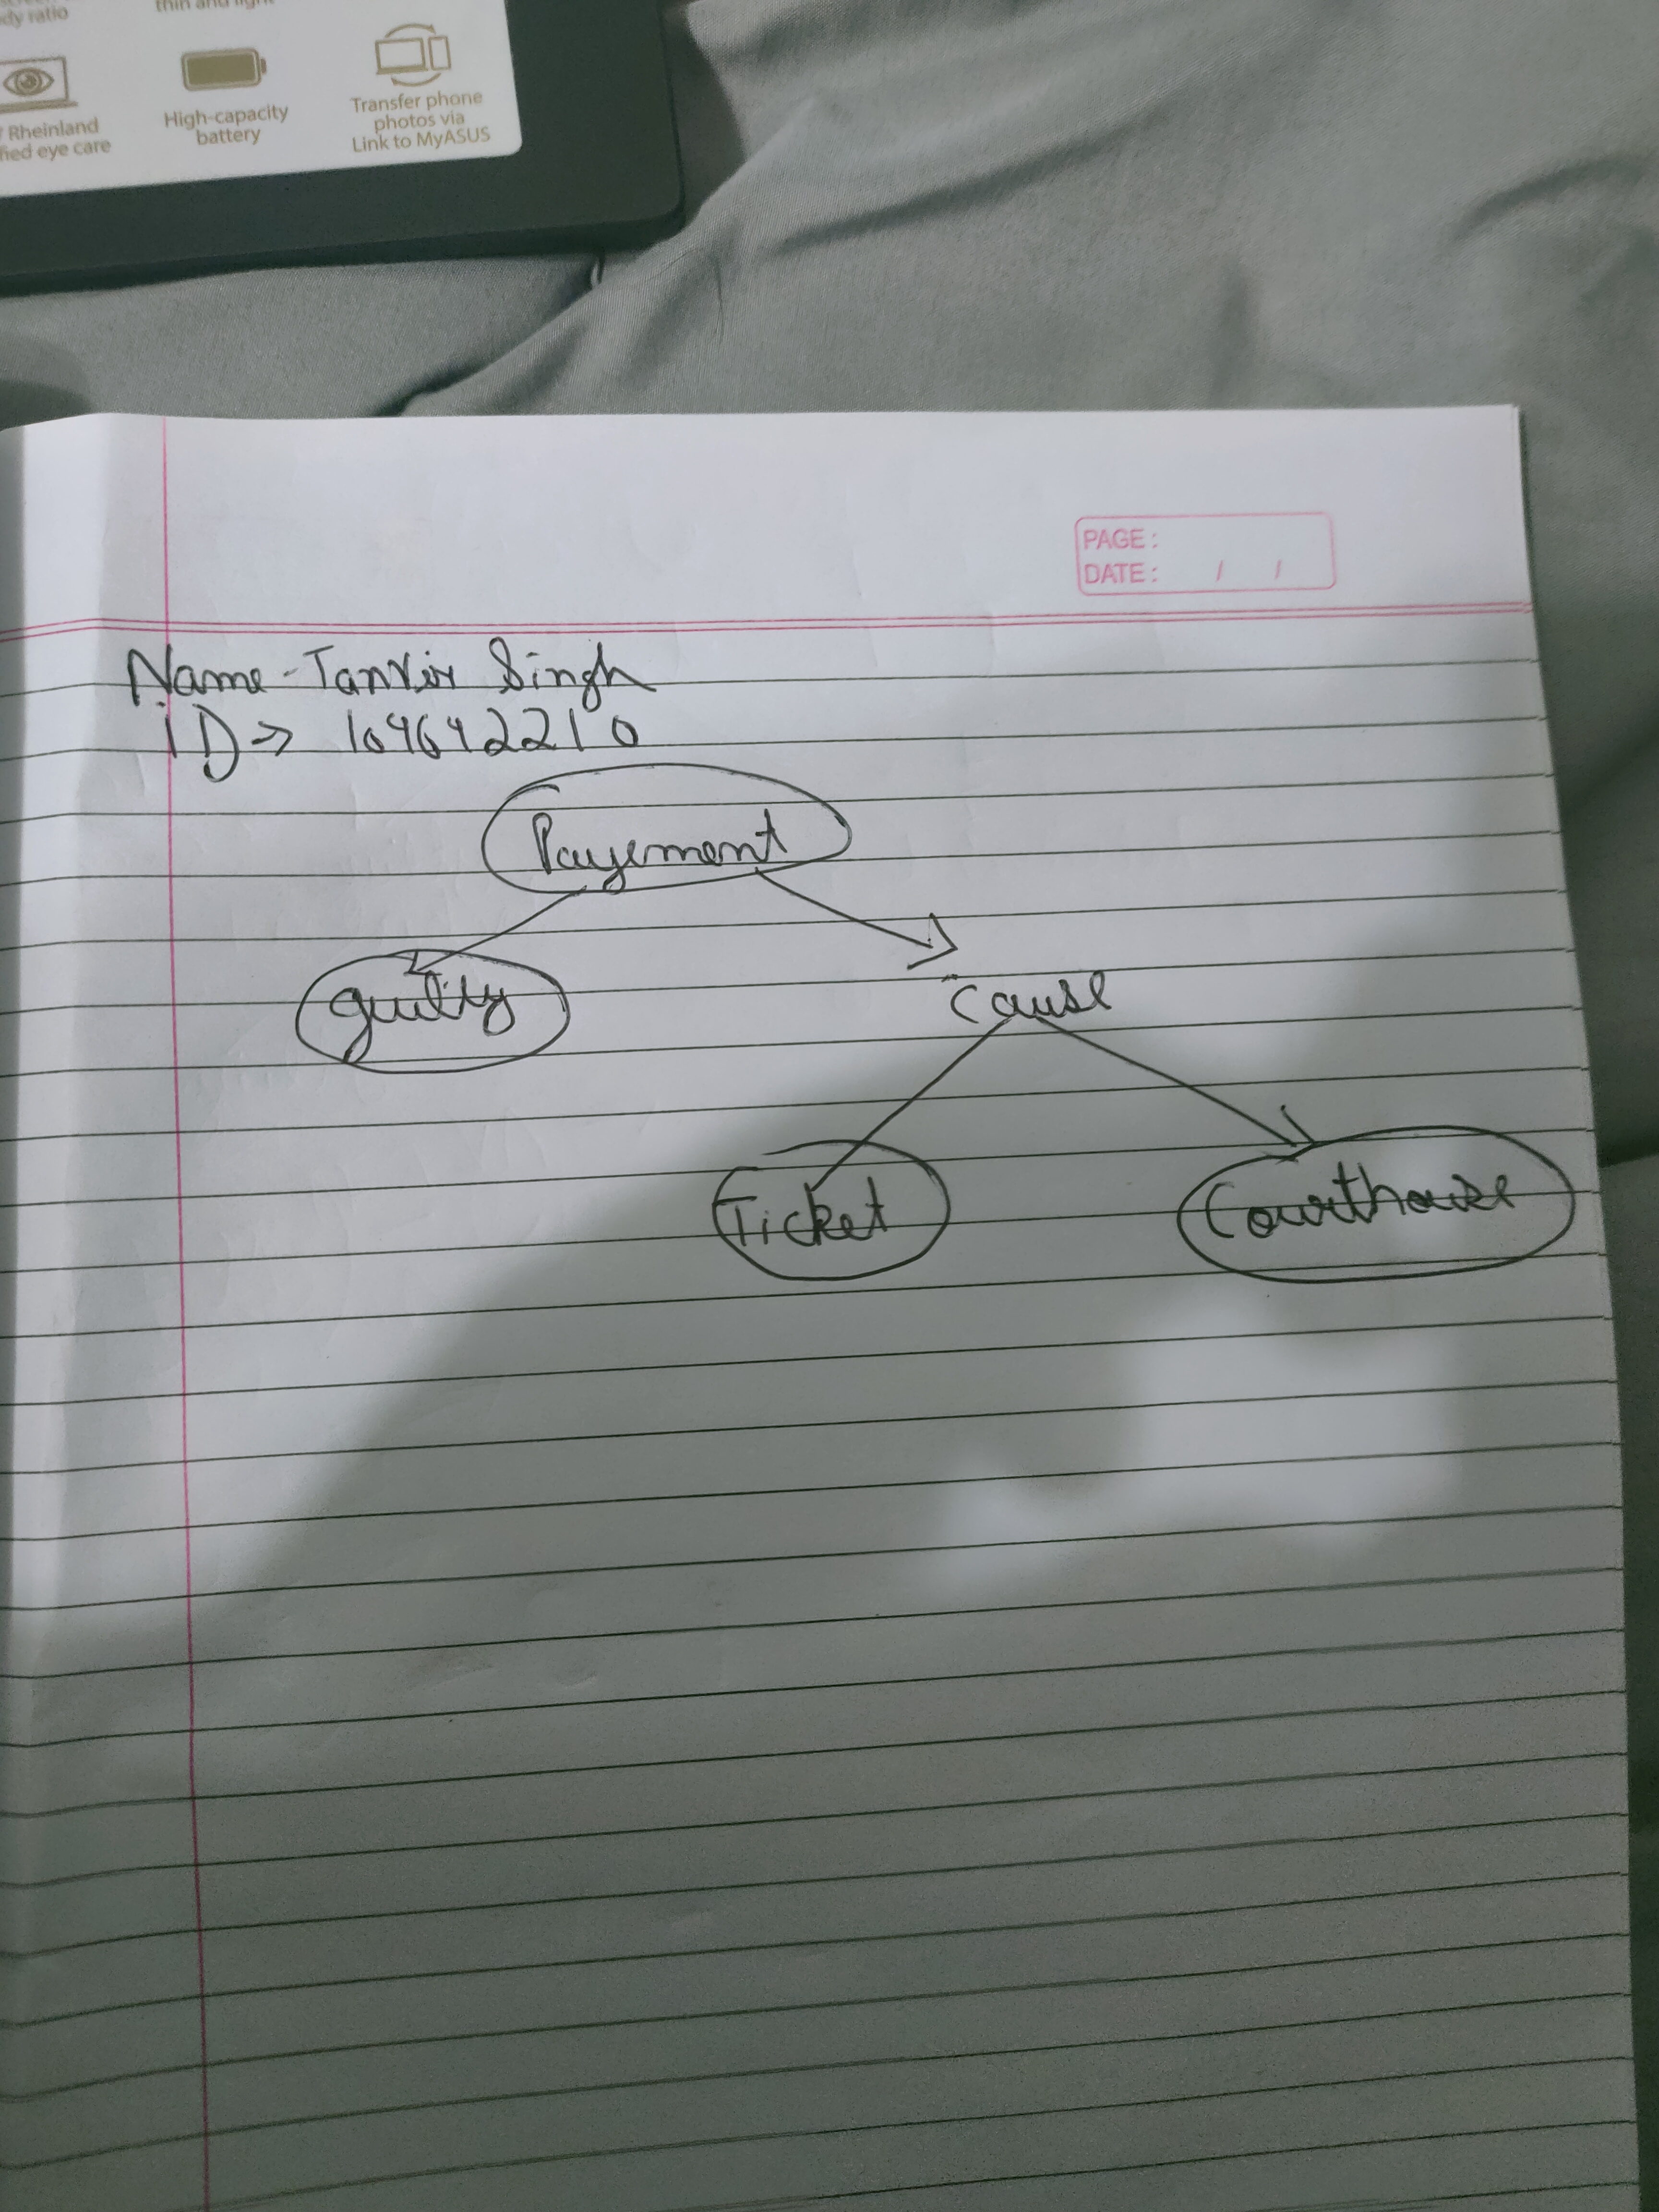 dy ratio
thin and light
Rheinland
fied eye care
High-capacity
battery
Transfer phone
photos via
Link to MyASUS
PAGE :
DATE : / /
Name - Tanvir Singh
ID → 104642210
Payement
guilty
cause
Ticket
Courthouse